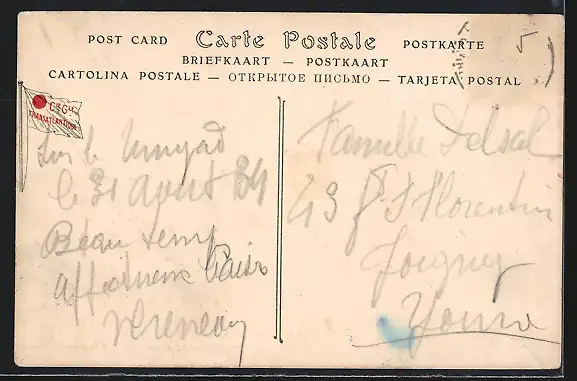 POST CARD Carte Postale POSTKARTE
BRIEFKAART — POSTKAART
CARTOLINA POSTALE — ОТКРЫТОЕ ПИСЬМО — TARJETA POSTAL
5
Cie Gle
TRANSATLANTIQUE
Sur le
le 31 Aout 34
Beau temps
Famille Delsal
43 St Florentin
Joigny
Yonne